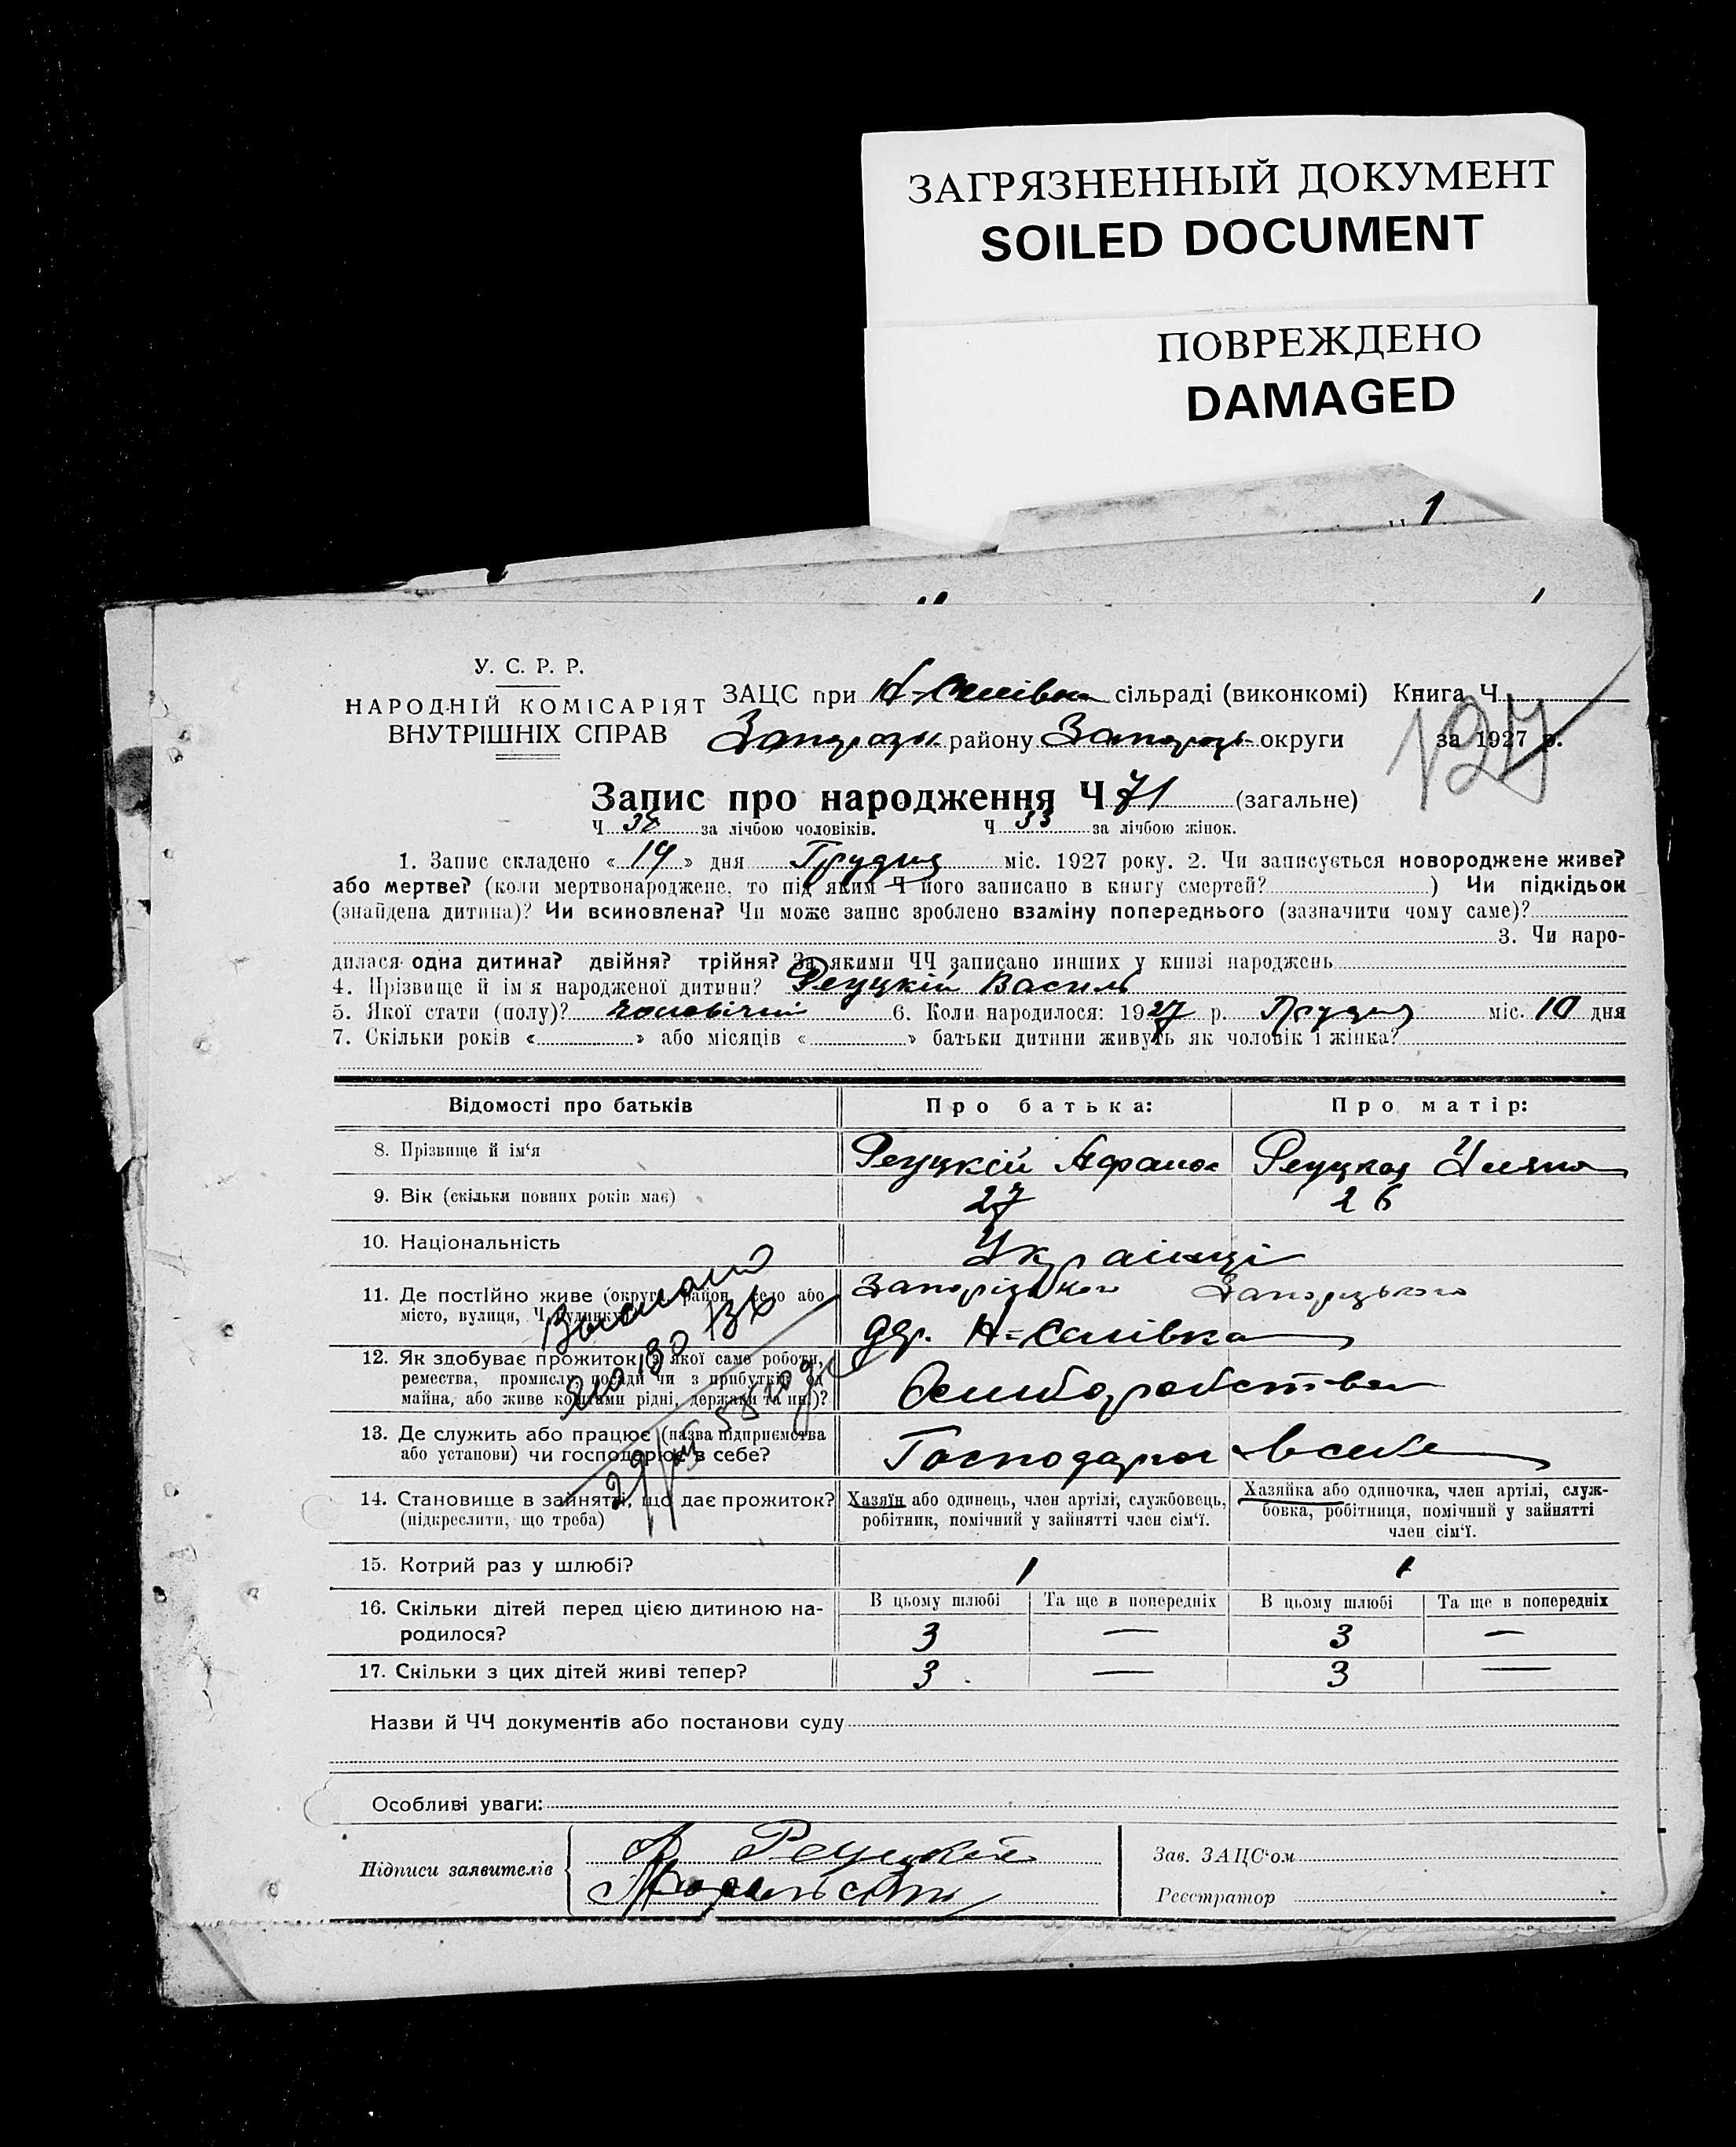 ЗАГРЯЗНЕННЫЙ ДОКУМЕНТ
SOILED DOCUMENT
ПОВРЕЖДЕНО
DAMAGED
1
У. С. Р. Р.
НАРОДНІЙ КОМІСАРІЯТ
ВНУТРІШНІХ СПРАВ
ЗАЦС при Н=Селівка сільраді (виконкомі) Книга Ч.
району округи за 1927 р.
127
Запис про народження Ч 71 (загальне)
Ч за лічбою чоловіків. Ч 33 за лічбою жінок.
1. Запис складено « 14 » дня Грудня міс. 1927 року. 2. Чи записується новороджене живе?
або мертве? (коли мертвонароджене, то під яким Ч його записано в книгу смертей? ) Чи підкідьок
(знайдена дитина)? Чи всиновлена? Чи може запис зроблено взаміну попереднього (зазначити чому саме)?
3. Чи наро-
дилася одна дитина? двійня? трійня? За якими ЧЧ записано инших у книзі народжень
4. Прізвище й ім'я народженої дитини? Рецукій Василь
5. Якої стати (полу)? чоловічий 6. Коли народилося: 1927 р. Грудня міс. 10 дня
7. Скільки років « » або місяців « » батьки дитини живуть як чоловік і жінка?
Відомості про батьків Про батька: Про матір:
8. Прізвище й ім'я Афанас Уляна
9. Вік (скільки повних років має) 27 26
10. Національність Українці
11. Де постійно живе (округа, район, село або
місто, вулиця, Ч. будинку)? Запорізького Запорізького
Н=Селівка
12. Як здобуває прожиток (з якої саме роботи,
ремества, промислу, посади чи з прибутків од
майна, або живе коштами рідні, держави та ин.)?
13. Де служить або працює (назва підприємства
або установи) чи господарює в себе? в себе
14. Становище в зайнятті, що дає прожиток?
(підкреслити, що треба)
Хазяїн або одинець, член артілі, службовець,
робітник, помічний у зайнятті член сім'ї.
Хазяйка або одиночка, член артілі, служ-
бовка, робітниця, помічний у зайнятті
член сім'ї.
15. Котрий раз у шлюбі? 1 1
16. Скільки дітей перед цією дитиною на-
родилося?
В цьому шлюбі Та ще в попередніх В цьому шлюбі Та ще в попередніх
3 — 3 —
17. Скільки з цих дітей живі тепер? 3 — 3 —
Назви й ЧЧ документів або постанови суду
Особливі уваги:
Підписи заявителів
Зав. ЗАЦС'ом
Реєстратор